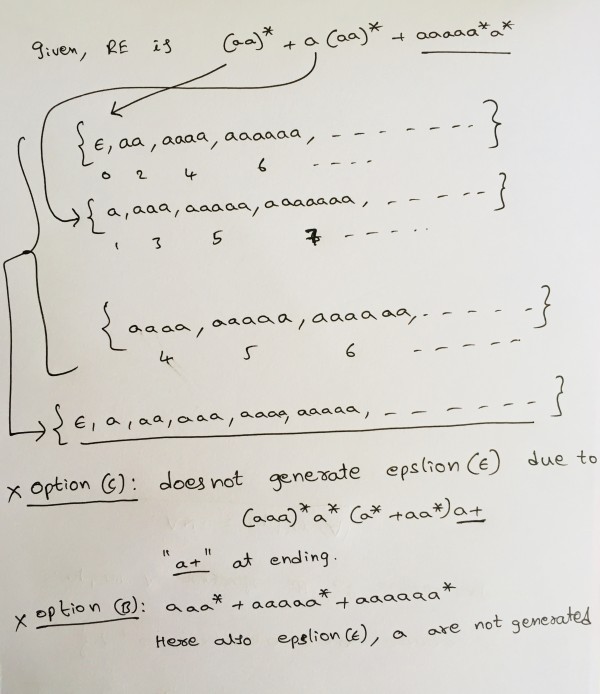 Given, RE is (aa)* + a (aa)* + aaaaa*a*
{ ϵ, aa, aaaa, aaaaaa, - - - - - - - - }
0 2 4 6 - - - -
{ a, aaa, aaaaa, aaaaaaa, - - - - - }
1 3 5 7 - - - - -
{ aaaa, aaaaa, aaaaaa, - - - - - }
4 5 6 - - - - -
{ ϵ, a, aa, aaa, aaaa, aaaaa, - - - - - - }
x option (C): does not generate epslion (ϵ) due to
(aaa)*a* (a* +aa*)a+
"a+" at ending.
x option (B): aaa* + aaaaa* + aaaaaa*
Here also epslion(ϵ), a are not generated